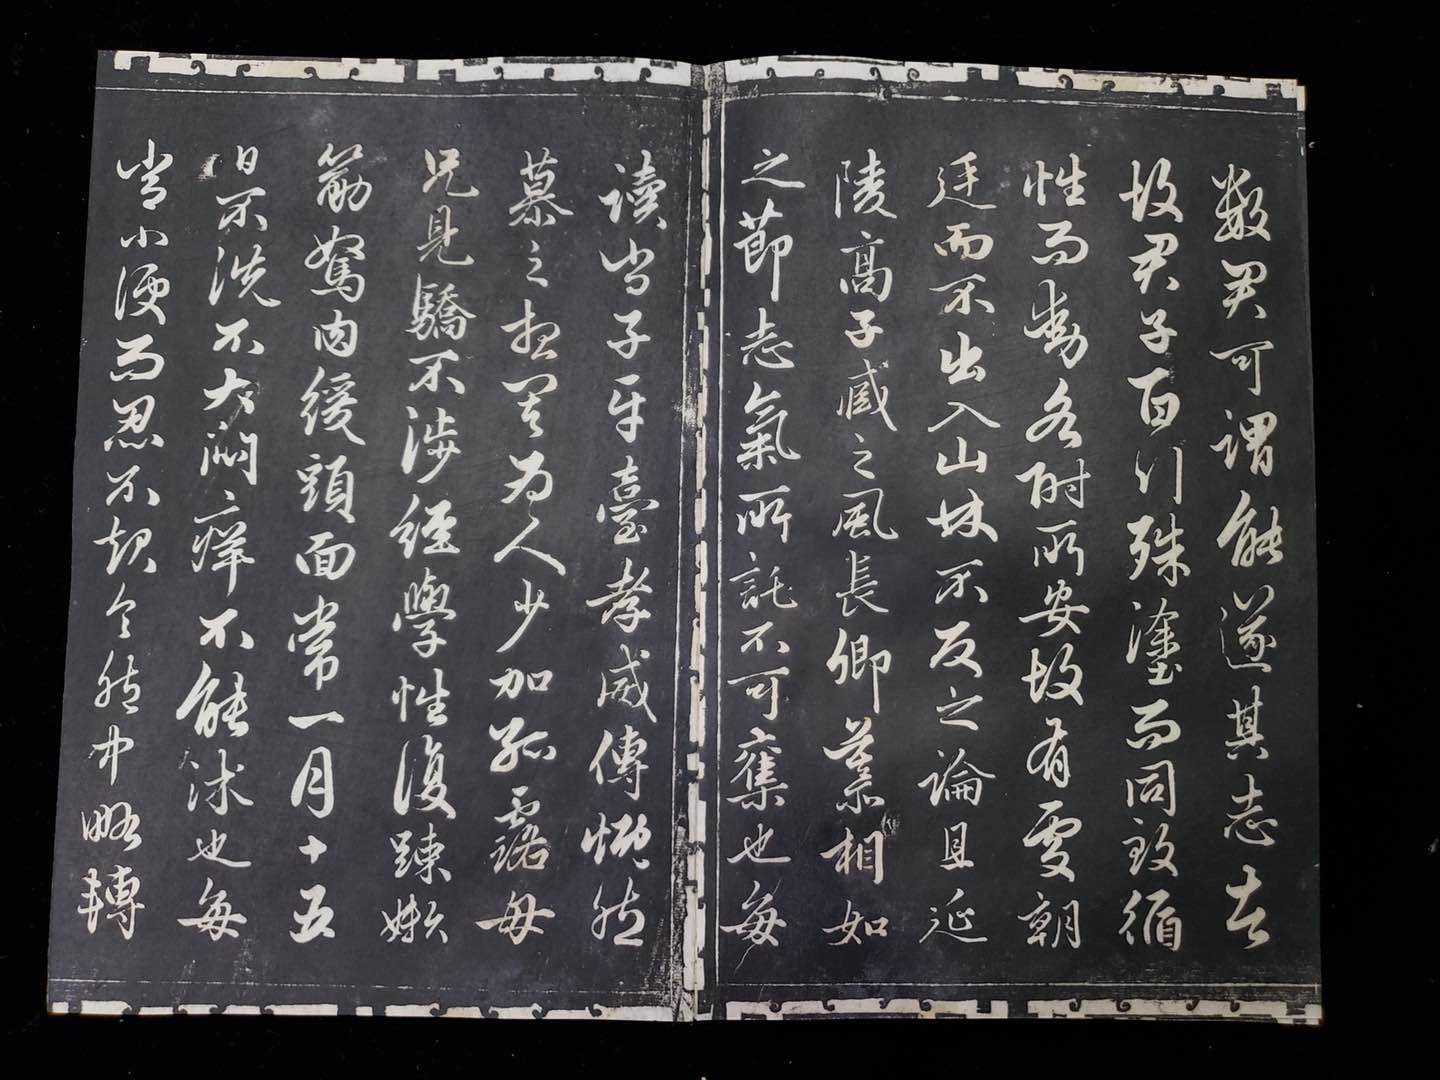 數君可謂能遂其志者
故君子百行殊塗而同致循
性而動各附所安故有處朝
廷而不出入山林不反之論且延
陵高子臧之風長卿慕相如
之節志氣所託不可奪也每
讀尚子平臺孝威傳慨然
慕之想其為人少加孤露母
兄見驕不涉經學性復疎嬾
筋駑肉緩頭面常一月十五
日不洗不大悶癢不能沐也每
常小便而忍不起令胞中略轉